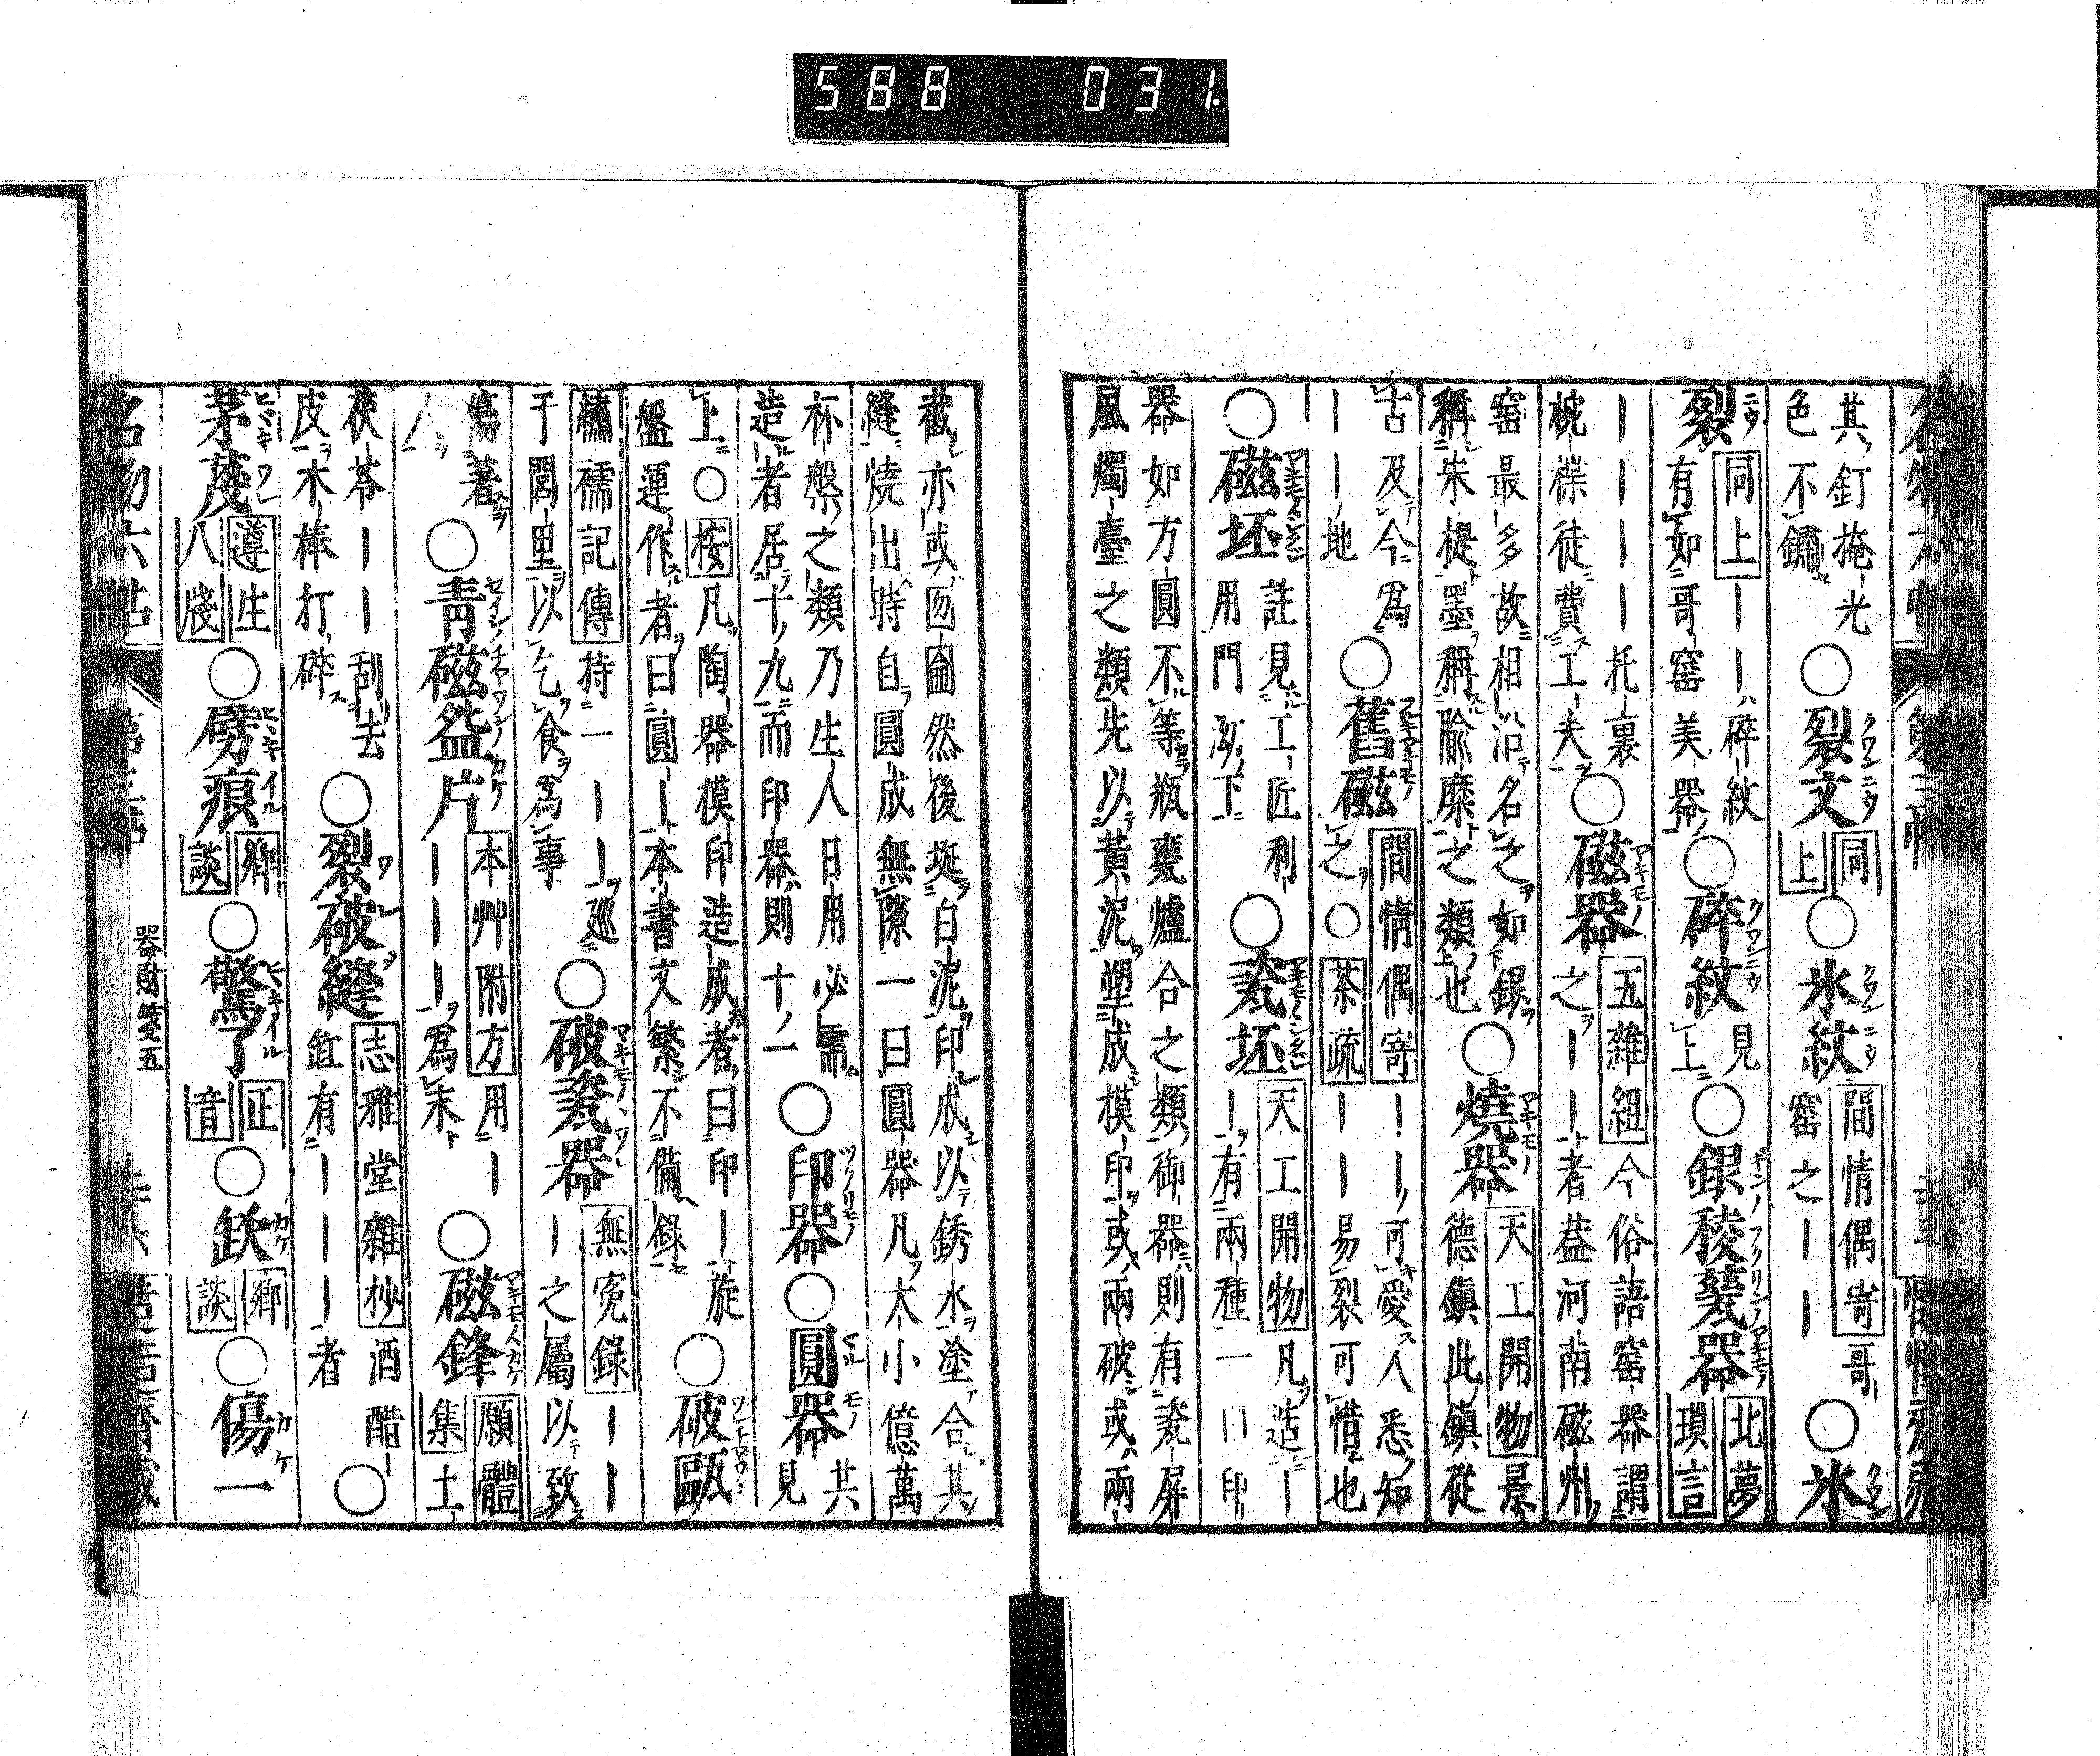 588 031
其釘掩光
色不鏽
○裂文
同上
○氷紋
間情偶寄
哥窑之｜｜
○氷裂
同上
｜｜碎紋
有如哥窑美器
○碎紋
見上
○銀稜甆器
北夢瑣言
｜｜｜｜托裏
椀楪徒費工夫
○磁器
五雜組
今俗語窑器謂
之｜｜者葢河南磁州
窑最多故相沿名之如銀
稱朱提墨稱隃糜之類也
○燒器
天工開物
景德鎮此鎮從
古及今為｜｜地
○舊磁
間情偶寄
｜｜可愛人悉知之
○茶疏
｜｜易裂可惜也
○磁坯
註見工匠利
用門泑下
○甆坯
天工開物
凡造｜
｜有兩種一曰印
器如方圓不等瓶甕爐合之類御器則有甆屏
風燭臺之類先以黃泥塑成模印或兩破或兩
截亦或囫圇然後埏白泥印成以銹水塗合其
縫燒出時自圓成無隙一曰圓器凡大小億萬
杯槃之類乃生人日用必需
造者居十九而印器則十一
○印器
○圓器
共見上
○按凡陶器模印造成者曰印｜旋
盤運作者曰圓｜本書文繁不備錄
○破甌
繡襦記傳
持一｜｜廵
于閭里以乞食為事
○破甆器
無寃錄
｜｜
｜之屬以致
傷著人
○青磁盌片
本艸附方
用｜
｜｜｜為末
○磁鋒
願體集
土
茯苓｜｜刮去
皮木棒打碎
○裂破縫
志雅堂雜抄
酒醋
缸有｜｜｜者
○
茅蔑
遵生八牋
○劈痕
鄉談
○驚了
正音
○缺
鄉談
○傷一
器財箋五